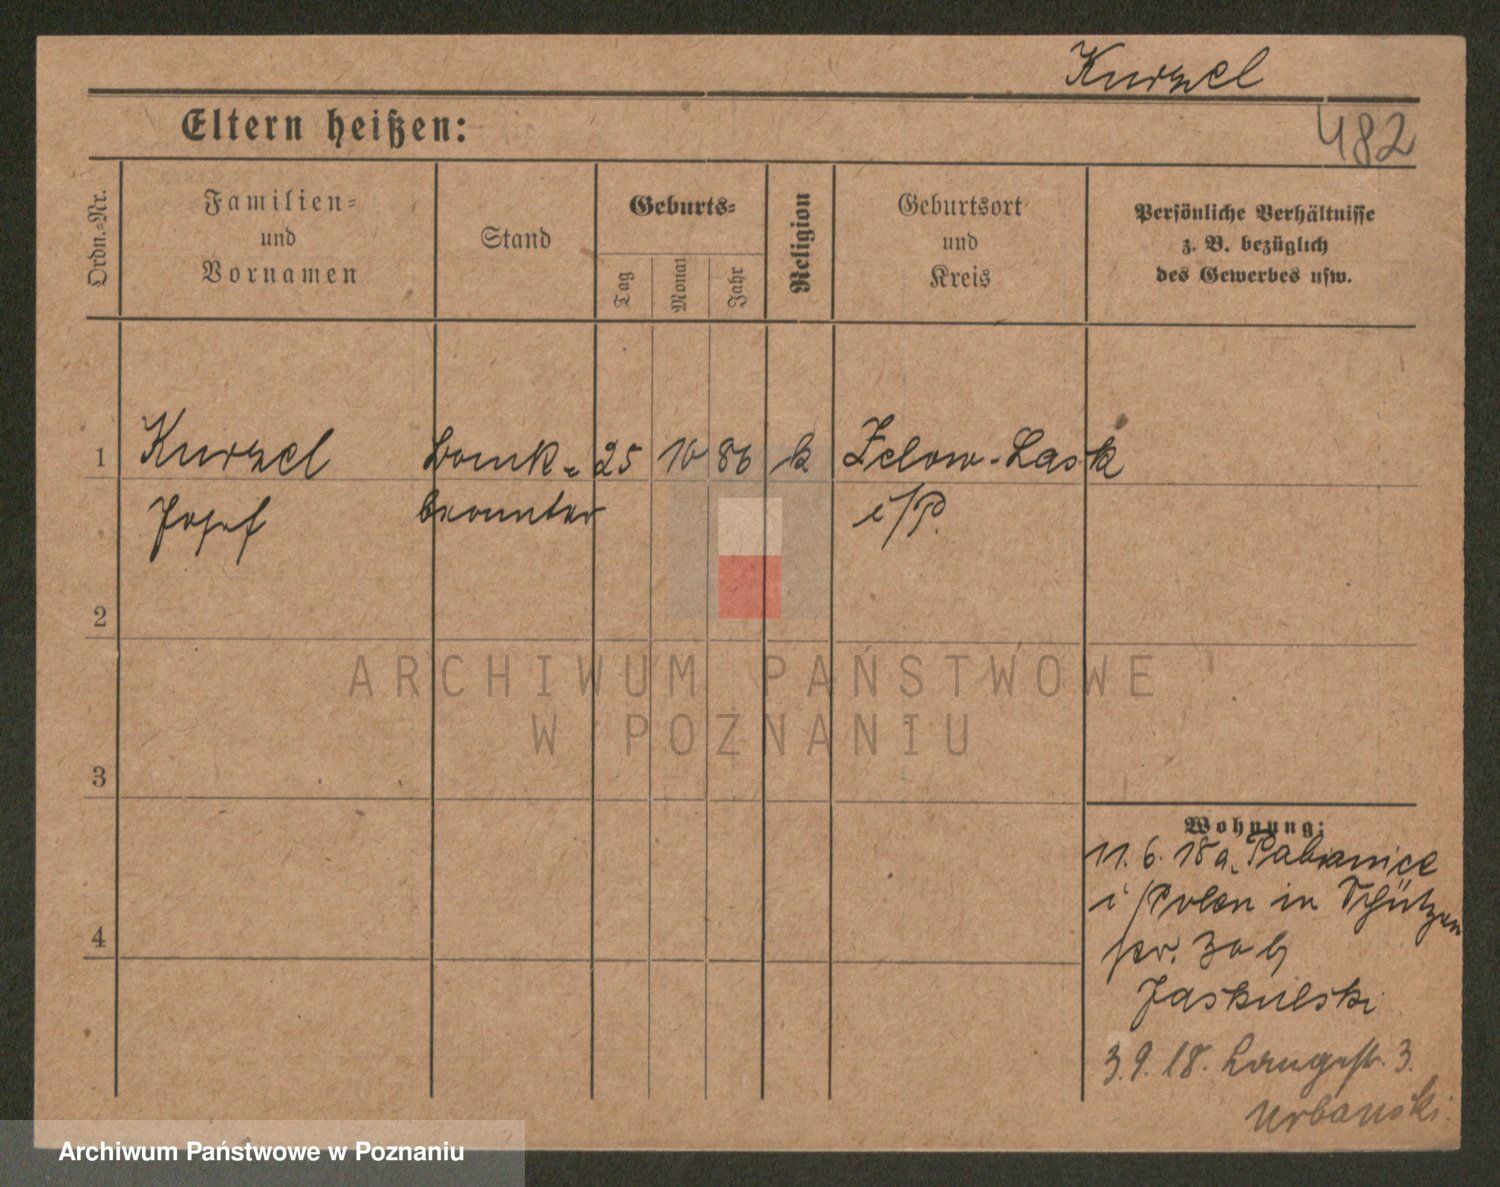 Kurzel
Eltern heißen:
482
Ordn.-Nr.
Familien-
und
Vornamen
Stand
Geburts-
Tag
Monat
Jahr
Religion
Geburtsort
und
Kreis
Persönliche Verhältnisse
z. B. bezüglich
des Gewerbes usw.
1
Kurzel
Bank-
25
10
86
k
Zelow-Lask
Josef
beamter
i/P.
2
ARCHIWUM PAŃSTWOWE
W POZNANIU
3
Wohnung:
11. 6. 18 a. Pabianice
i/Polen in Schützen
str. 30 b
Jaskulski
4
3. 9. 18. Langestr. 3.
Urbanski.
Archiwum Państwowe w Poznaniu